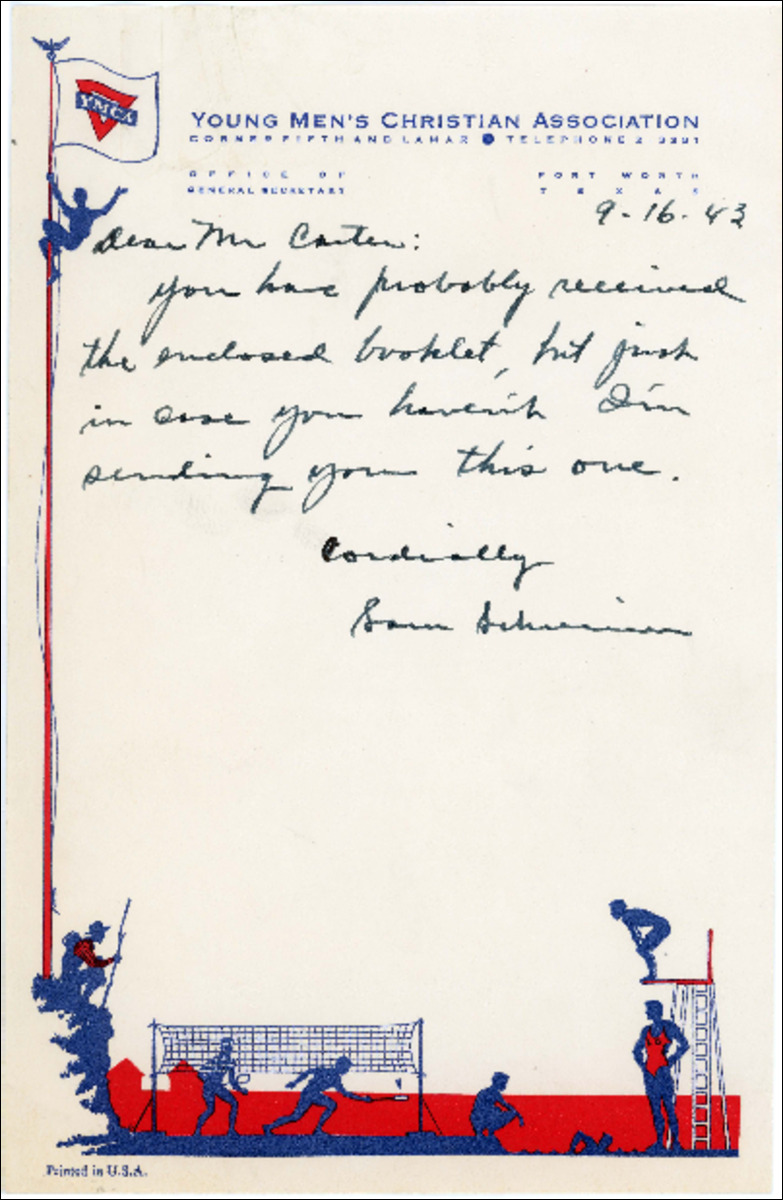 YMCA
YOUNG MEN'S CHRISTIAN ASSOCIATION
CORNER FIFTH AND LAMAR TELEPHONE 2 3221
OFFICE OF
GENERAL SECRETARY
FORT WORTH
TEXAS
9-16-43
Dear Mr Carter:
You have probably received
the enclosed booklet, but just
in case you haven't I'm
sending you this one.
Cordially
Sam
Printed in U.S.A.